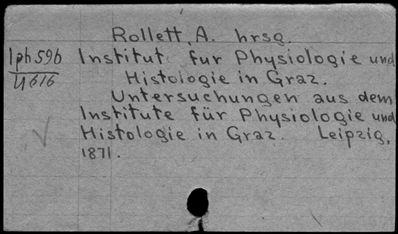 Rollett, A. hrsg.
Iph59b Institut für Physiologie und
U616 Histologie in Graz.
Untersuchungen aus dem
Institute für Physiologie und
Histologie in Graz. Leipzig,
1871.